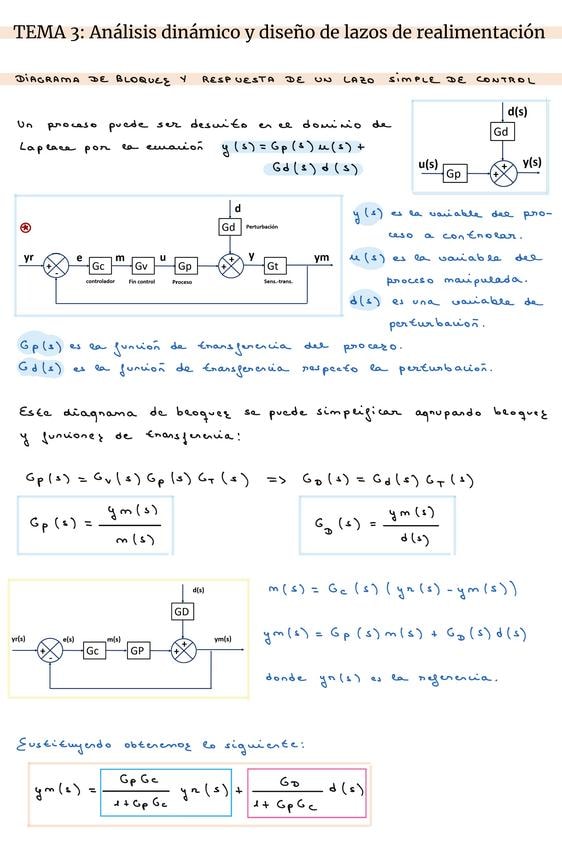 TEMA 3: Análisis dinámico y diseño de lazos de realimentación
DIAGRAMA DE BLOQUES Y RESPUESTA DE UN LAZO SIMPLE DE CONTROL
Un proceso puede ser descrito en el dominio de
Laplace por la ecuación y(s) = Gp(s) u(s) +
Gd(s) d(s)
d(s)
Gd
u(s)
Gp
+
+
y(s)
d
Gd
Perturbación
yr
+
-
e
Gc
m
Gv
u
Gp
+
+
y
Gt
ym
controlador
Fin control
Proceso
Sens.-trans.
y(s) es la variable del pro-
ceso a controlar.
u(s) es la variable del
proceso manipulada.
d(s) es una variable de
perturbación.
Gp(s) es la función de transferencia del proceso.
Gd(s) es la función de transferencia respecto la perturbación.
Este diagrama de bloques se puede simplificar agrupando bloques
y funciones de transferencia:
Gp(s) = Gv(s) Gp(s) GT(s) => GD(s) = Gd(s) GT(s)
Gp(s) = ym(s) / m(s)
GD(s) = ym(s) / d(s)
d(s)
GD
yr(s)
+
-
e(s)
Gc
m(s)
GP
+
+
ym(s)
m(s) = Gc(s) (yr(s) - ym(s))
ym(s) = Gp(s) m(s) + GD(s) d(s)
donde yr(s) es la referencia.
Sustituyendo obtenemos lo siguiente:
ym(s) = Gp Gc / 1 + Gp Gc yr(s) + GD / 1 + Gp Gc d(s)